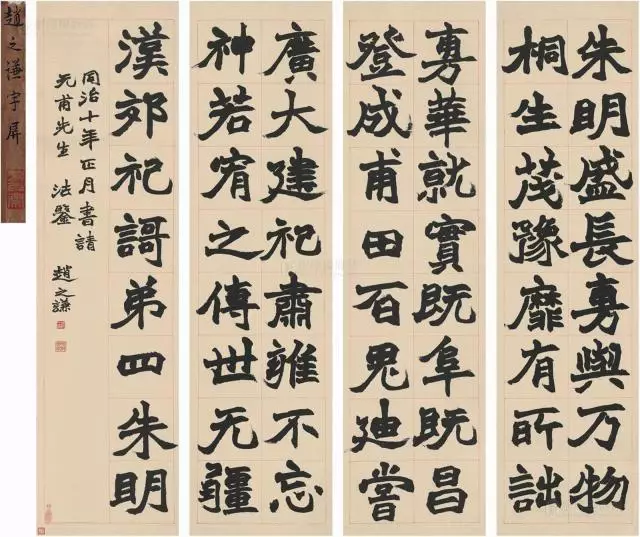 趙之謙字屏
朱明盛長旉與万物
桐生茂豫靡有所詘
旉華就實既阜既昌
登成甫田百鬼迪嘗
廣大建祀肅雝不忘
神若宥之傳世无疆
漢郊祀謌弟四朱明
同治十年正月書請
元甫先生 法鑒 趙之謙